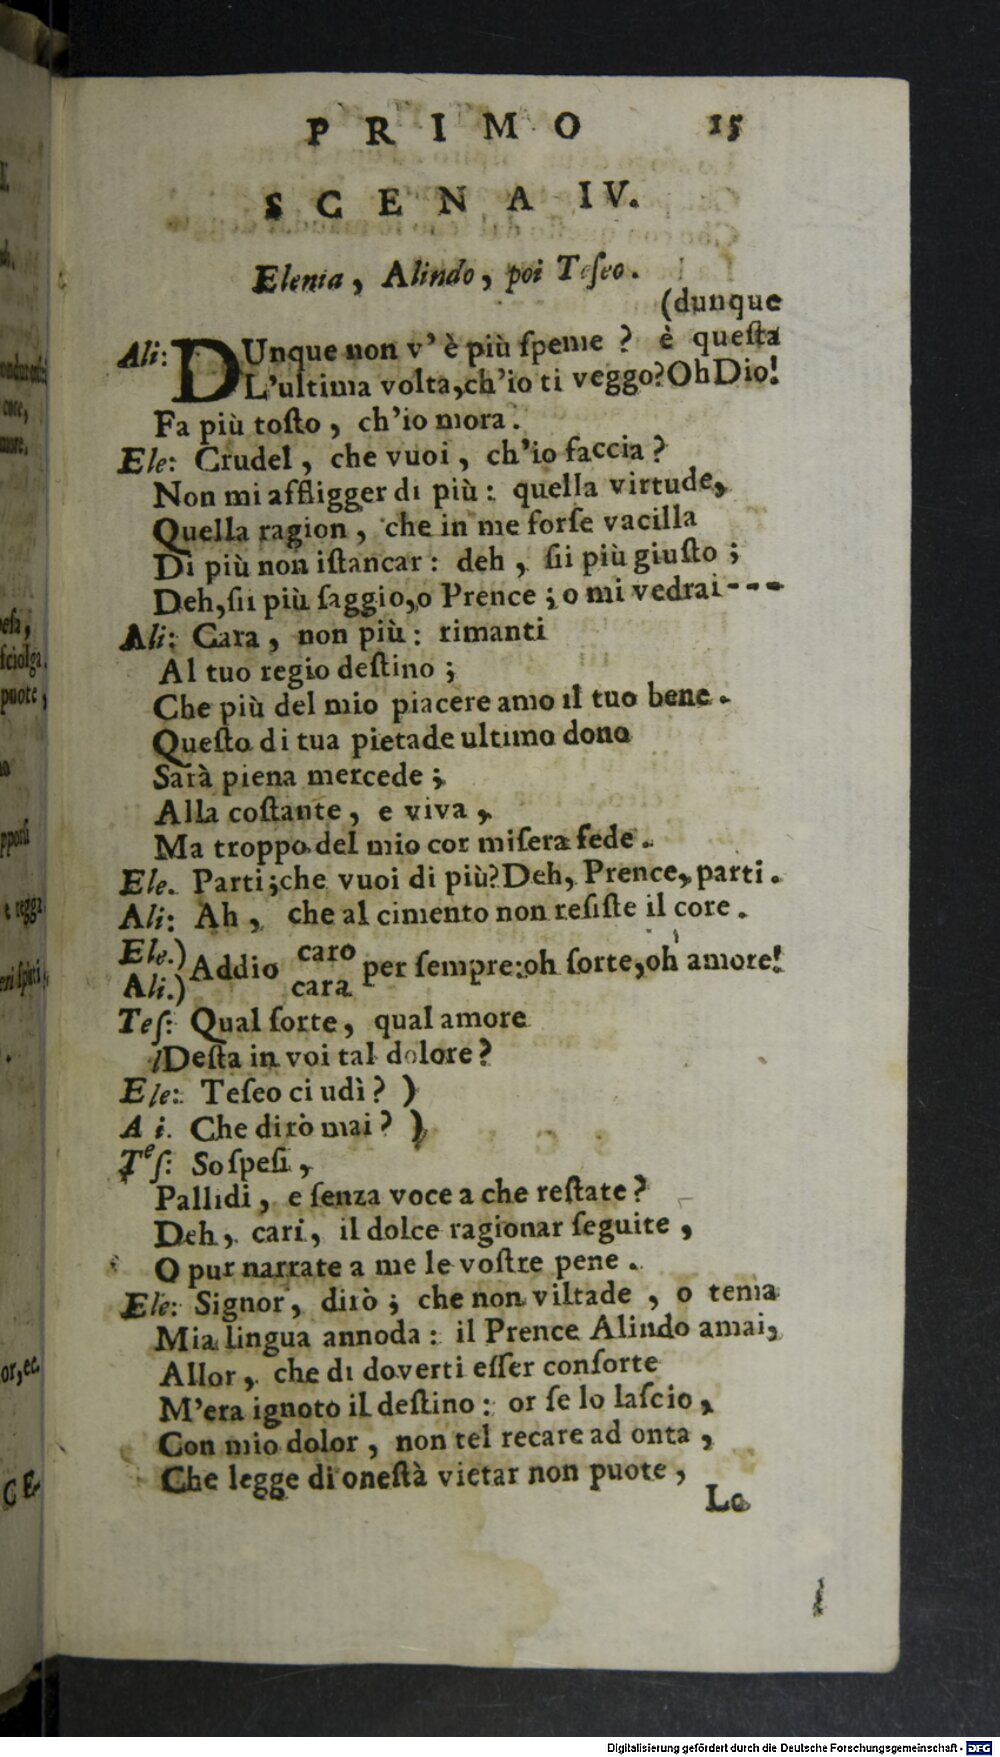 PRIMO 15
SCENA IV.
Elenia, Alindo, poi Teſeo.
(dunque
Ali: DUnque non v' è più ſpeme ? è queſta
L'ultima volta, ch'io ti veggo? Oh Dio!
Fa più toſto, ch'io mora.
Ele: Crudel, che vuoi, ch'io faccia?
Non mi affligger di più: quella virtude,
Quella ragion, che in me forſe vacilla
Di più non iſtancar: deh, ſii più giuſto;
Deh, ſii più ſaggio, o Prence; o mi vedrai---
Ali: Cara, non più: rimanti
Al tuo regio deſtino;
Che più del mio piacere amo il tuo bene.
Queſto di tua pietade ultimo dono
Sarà piena mercede;
Alla coſtante, e viva,
Ma troppo del mio cor miſera fede.
Ele. Parti; che vuoi di più? Deh, Prence, parti.
Ali: Ah, che al cimento non reſiſte il core.
Ele.) Addio caro per ſempre: oh ſorte, oh amore!
Ali.) cara
Teſ: Qual ſorte, qual amore
Deſta in voi tal dolore?
Ele: Teſeo ci udì? )
A i. Che dirò mai? )
Teſ: Soſpeſi,
Pallidi, e ſenza voce a che reſtate?
Deh, cari, il dolce ragionar ſeguite,
O pur narrate a me le voſtre pene.
Ele: Signor, dirò; che non viltade, o tema
Mia lingua annoda: il Prence Alindo amai,
Allor, che di doverti eſſer conſorte
M'era ignoto il deſtino: or ſe lo laſcio,
Con mio dolor, non tel recare ad onta,
Che legge di oneſtà vietar non puote,
Lo
Digitalisierung gefördert durch die Deutsche Forschungsgemeinschaft - DFG